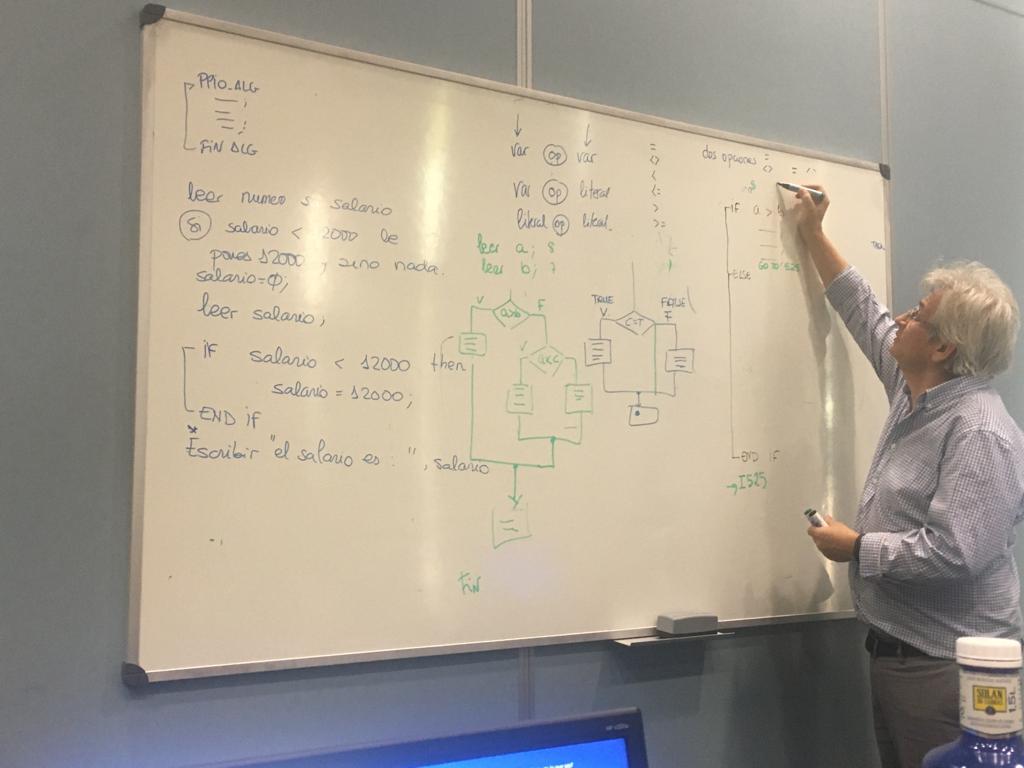 PPIO_ALG
FIN ALG
leer numero s salario
Si salario < 2000 le
pones 12000, sino nada.
salario=Φ;
leer salario;
IF salario < 12000 then
salario = 12000;
END IF
* Escribir "el salario es: ", salario
var op var
var op literal
literal op literal
=
<>
<
<=
>
>=
leer a; 8
leer b; 7
V
a>b
F
V
a<c
FIN
TRUE
V
C=T
FALSE
F
dos opciones =
<>
= <>
8
IF a > b
GO TO I525
ELSE
END IF
→I525
SOLAN
1,5L